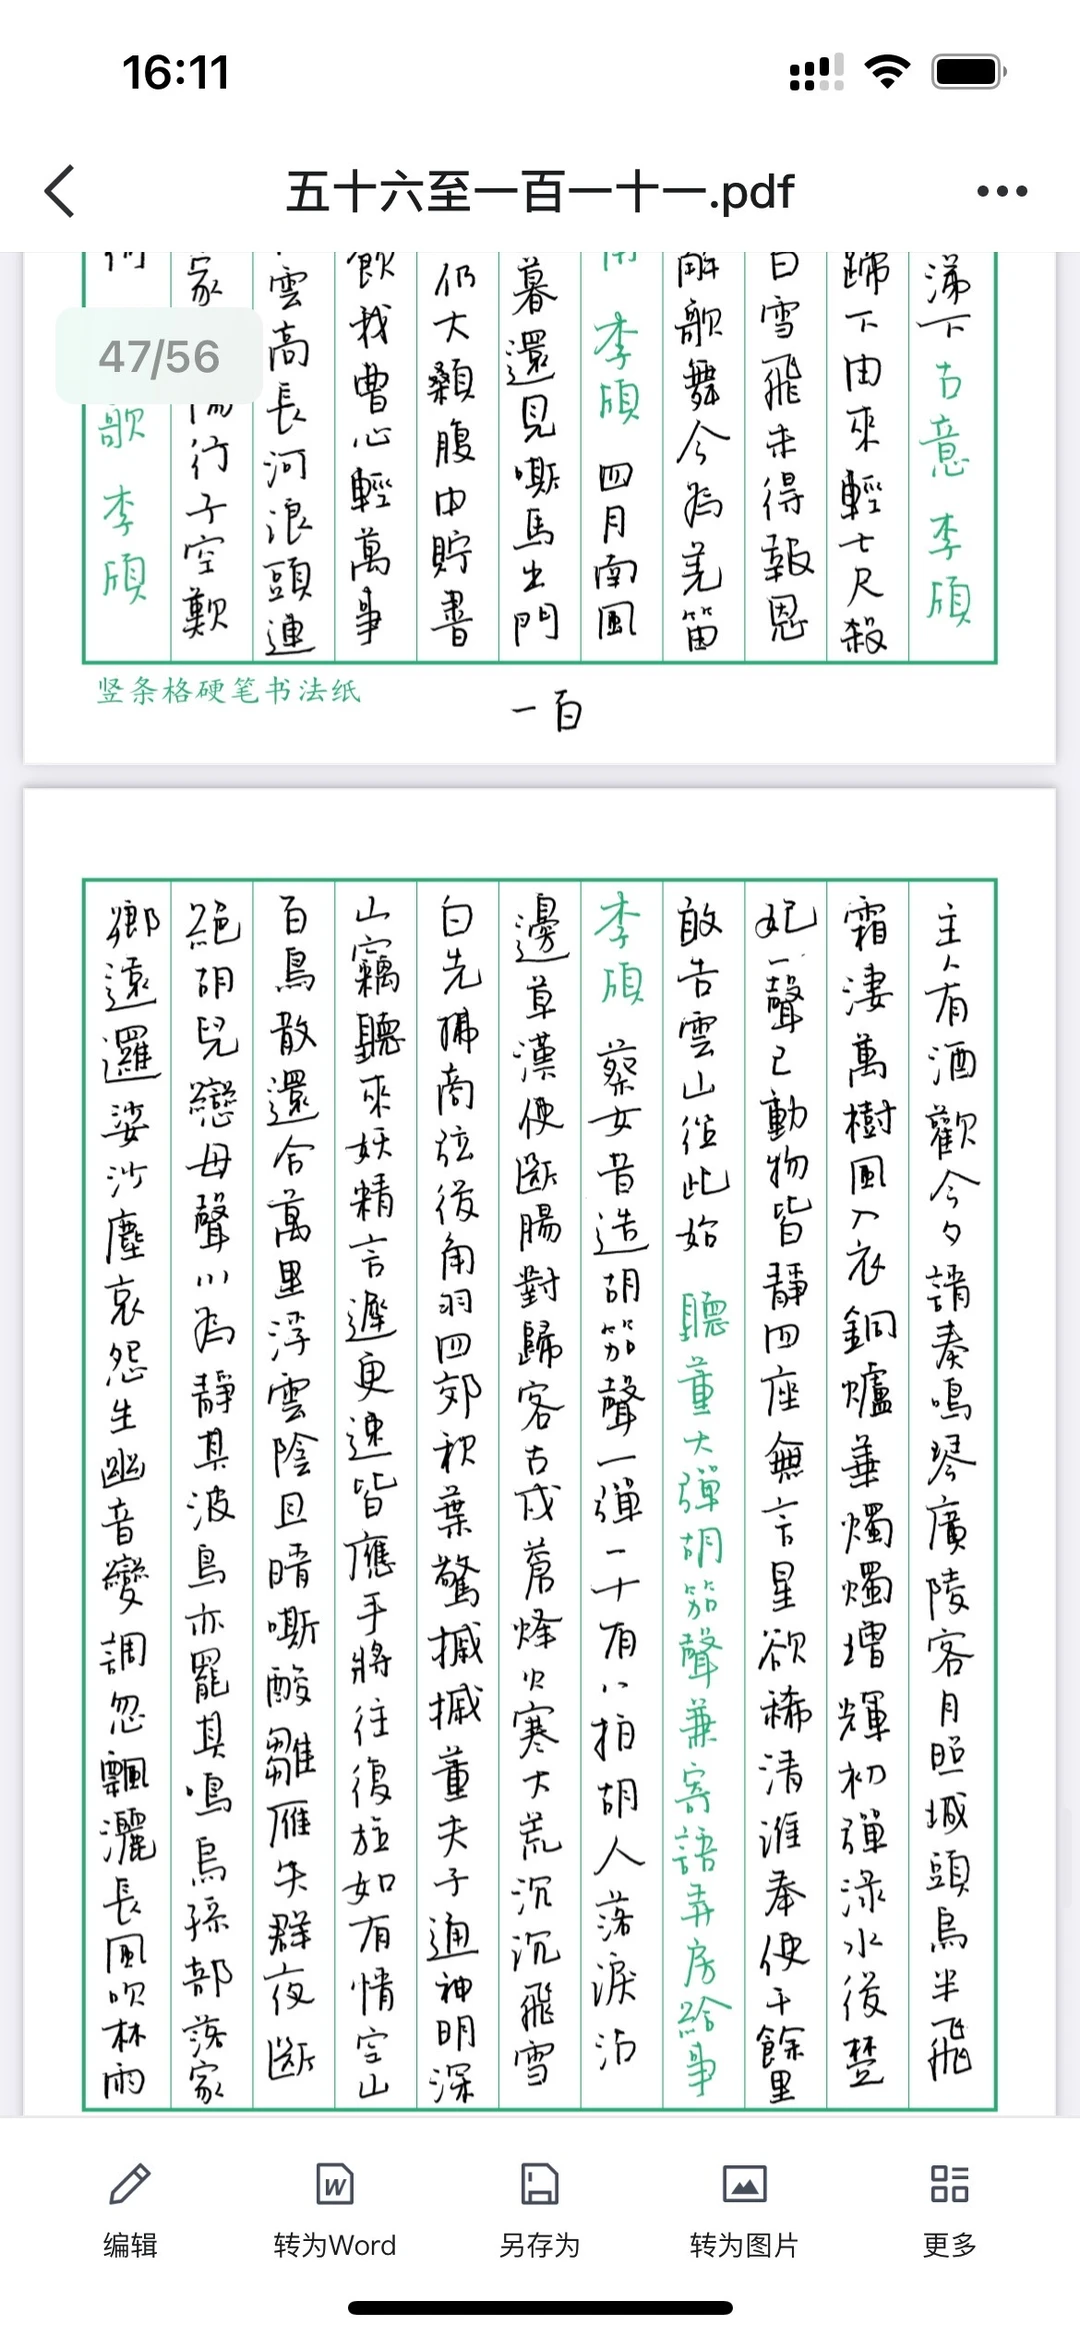 16:11
五十六至一百一十一.pdf
47/56
涕下 古意 李頎
蹄下由來輕七尺殺
白雪飛未得報恩
解歌舞今為羌笛
李頎 四月南風
暮還見嘶馬出門
仍大顙腹中貯書
飲我曹心輕萬事
雲高長河浪頭連
家 行子空歎
歌 李頎
竖条格硬笔书法纸
一百
主人有酒歡今夕請奏鳴琴廣陵客月照城頭烏半飛
霜淒萬樹風入衣銅爐華燭燭增輝初彈淥水後楚
妃一聲已動物皆靜四座無言星欲稀清淮奉使千餘里
敢告雲山從此始 聽董大彈胡笳聲兼寄語弄房給事
李頎 蔡女昔造胡笳聲一彈一十有八拍胡人落淚沾
邊草漢使斷腸對歸客古戍蒼烽火寒大荒沉沉飛雪
白先拂商弦後角羽四郊秋葉驚摵摵董夫子通神明深
山竊聽來妖精言遲更速皆應手將往復旋如有情空山
百鳥散還合萬里浮雲陰且晴嘶酸雛雁失群夜斷
絕胡兒戀母聲川為靜其波鳥亦罷其鳴烏孫部落家
鄉遠邏娑沙塵哀怨生幽音變調忽飄灑長風吹林雨
编辑
转为Word
另存为
转为图片
更多